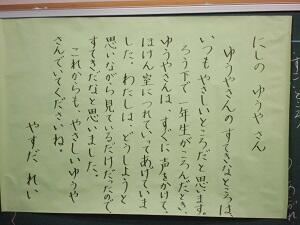 にしの ゆうや さん
ゆうやさんのすてきなところは、
いつもやさしいところだと思います。
ろう下で一年生がころんだとき、
ゆうやさんは、すぐに声をかけて、
ほけん室につれていってあげていま
した。わたしは、どうしようと
思いながら見ているだけだったので
すてきだなと思いました。
これからも、やさしいゆうや
さんでいてくださいね。
やすだ れい